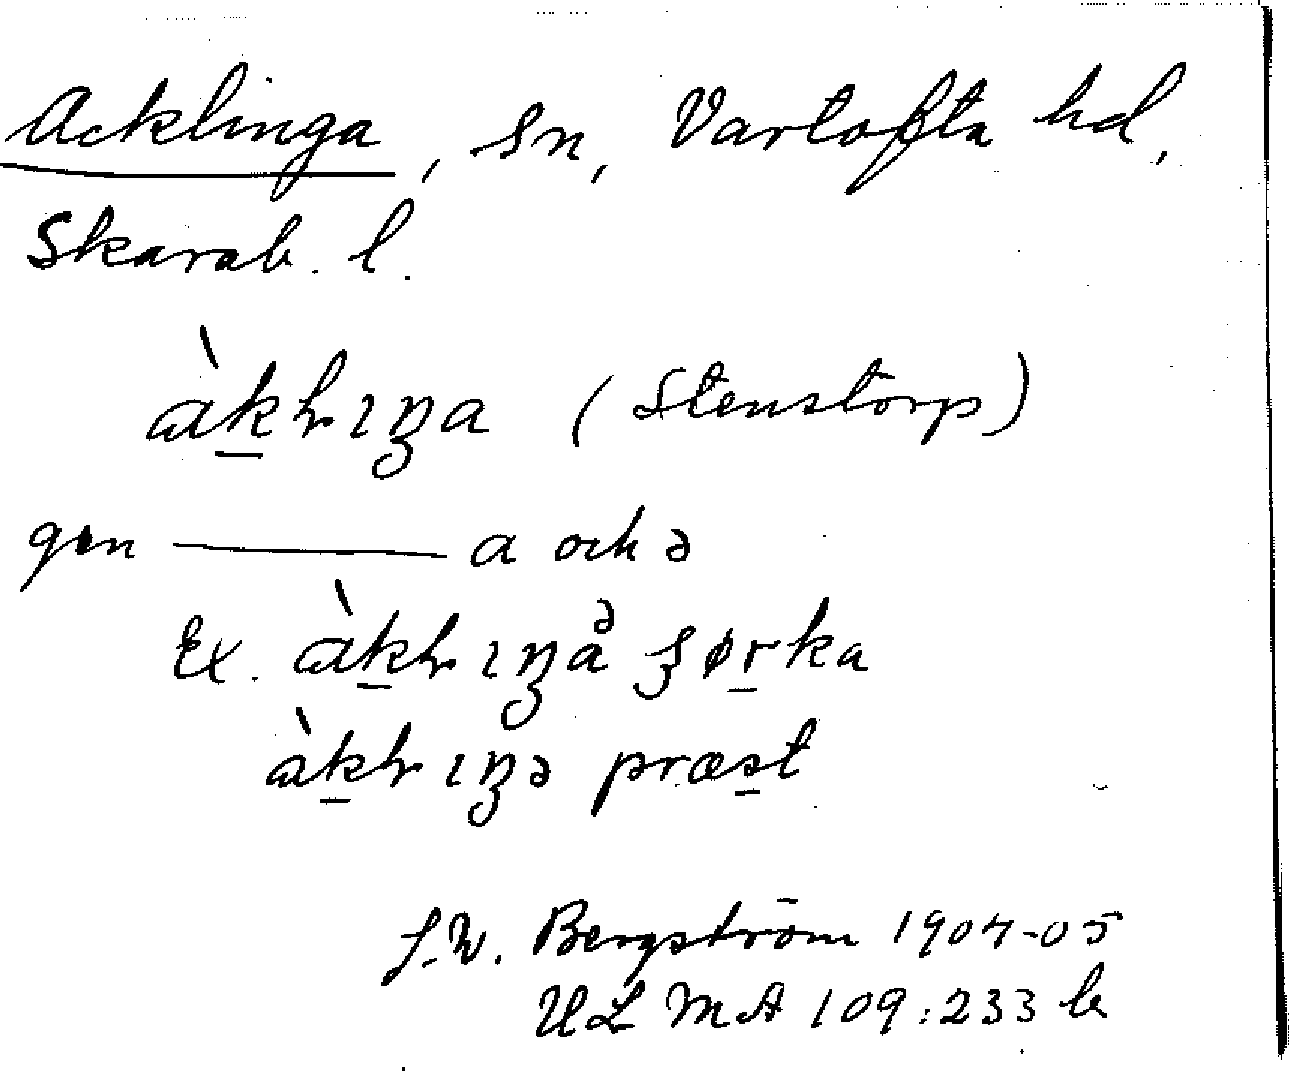 Acklinga, sn, Vartofta hd,
Skarab. l.
àkłıŋa (Stenstorp)
gen ——— a och ə
Ex. àkłıŋa ə ʂørka
àkłıŋə præst
J.W. Bergström 1904-05
ULMA 109:233 b